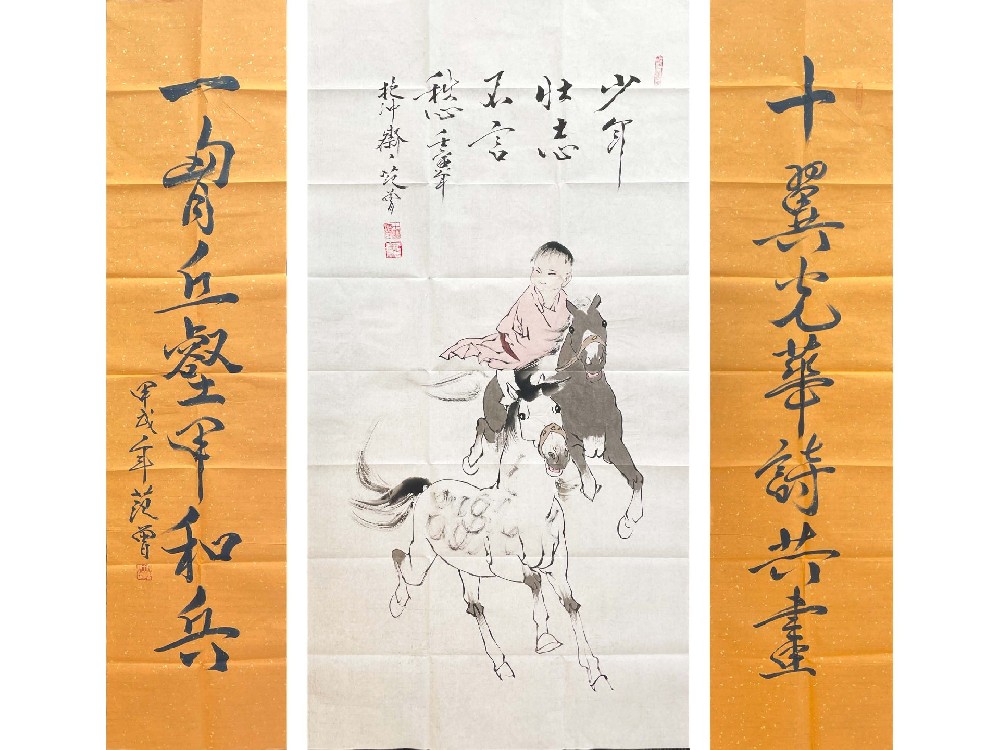 十翼光華詩共畫
少年
壮志
不言
愁 壬寅年
抱冲齋 范曾
一胷丘壑甲和兵
甲戌年 范曾